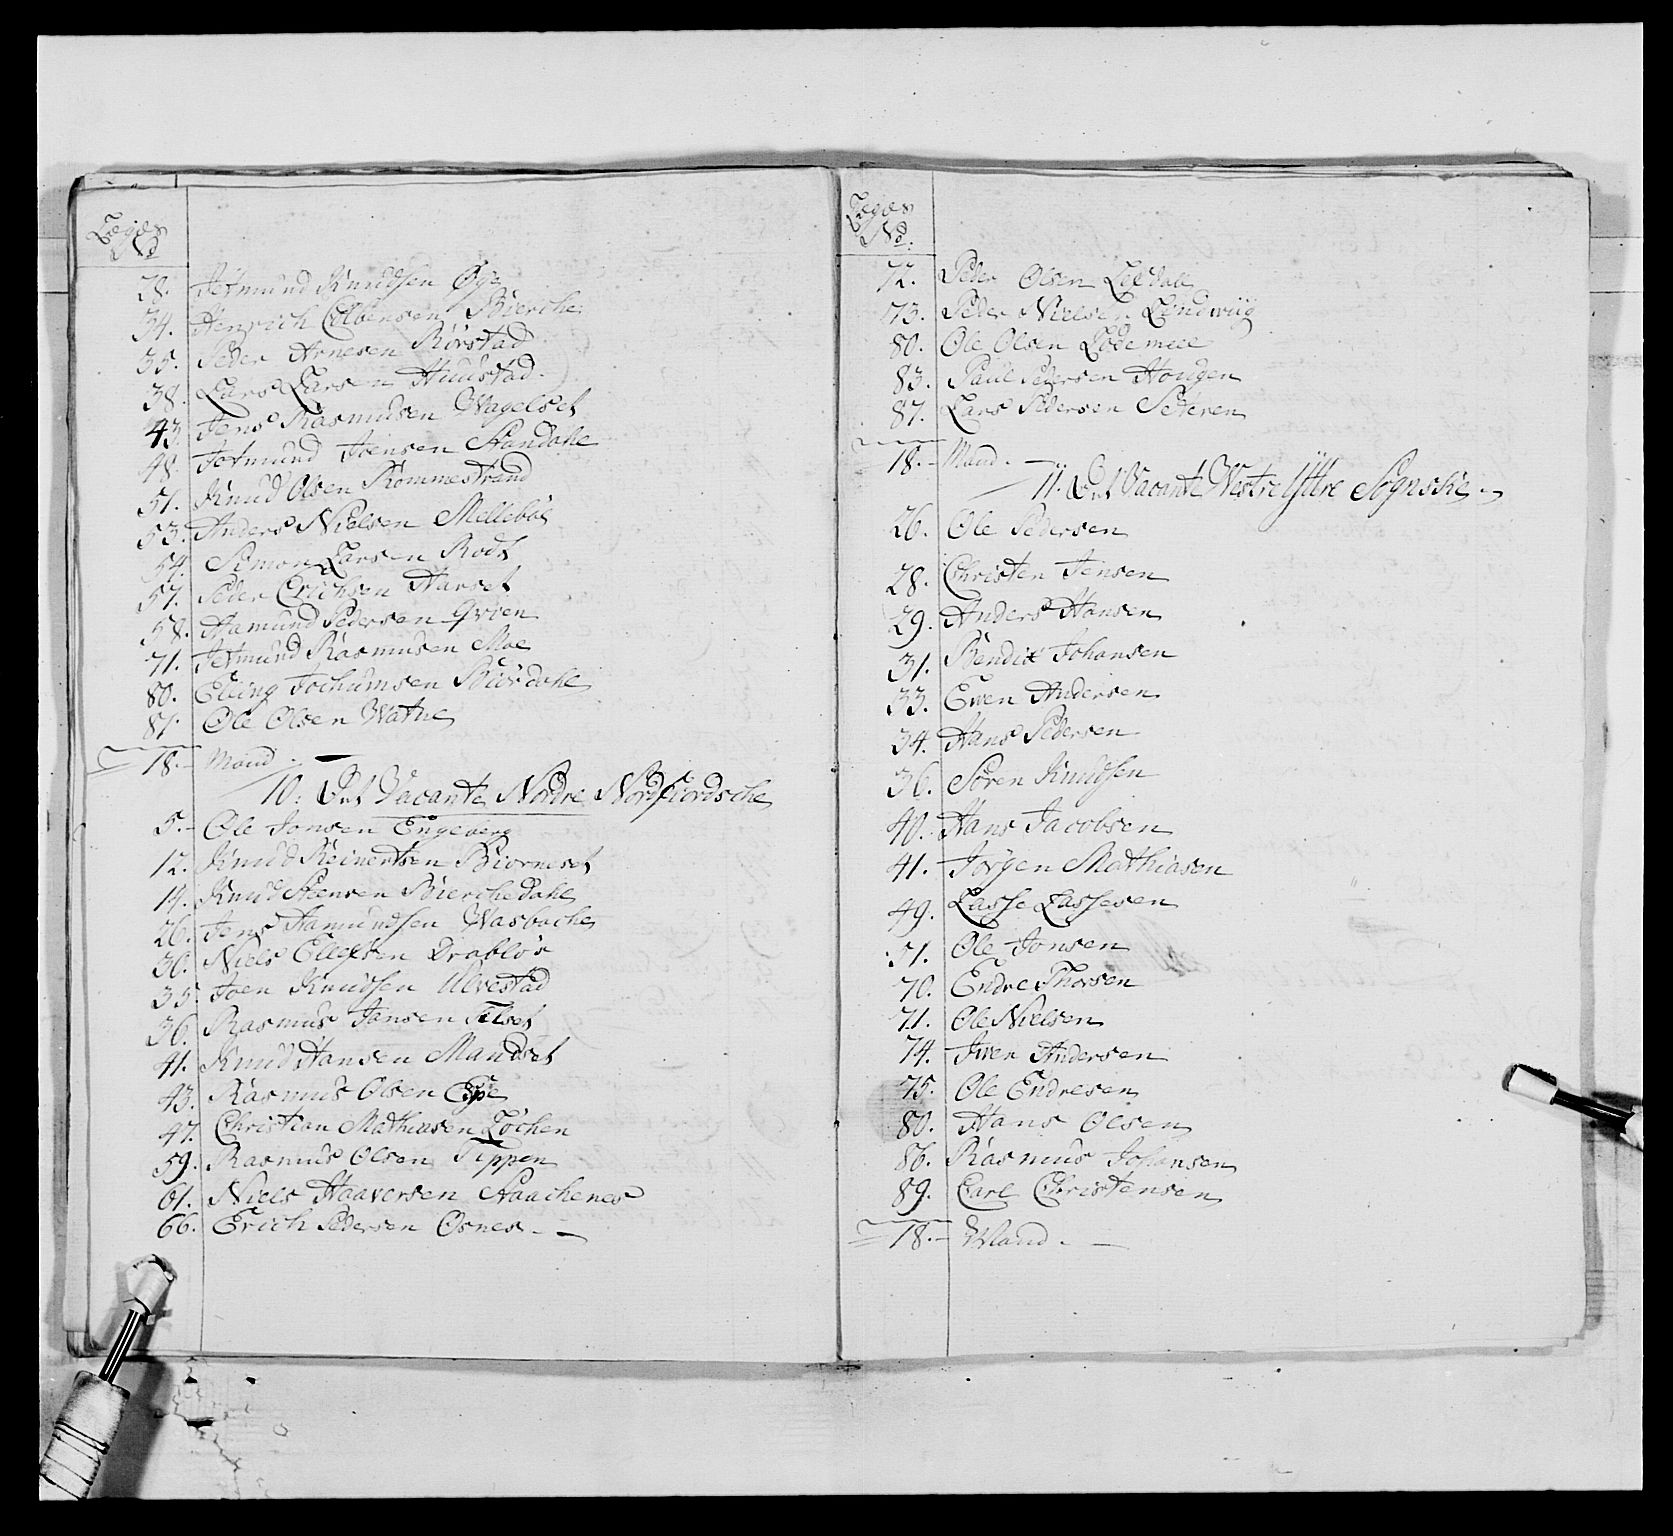 Lægdes
No
28. Jetmund Knudsen Øye
34. Henrich Colbensen Bierche
35. Peder Arnesen Rörstad
38. Lars Larsen Huustad.
43. Jens Rasmusen Wagelset
48. Jetmund Joensen Standahl
51. Knud Olsen Römmestrand
53. Anders Nielsen Melleböe
54. Simon Larsen Rodt
57. Peder Erichsen Harset
58. Aamund Pedersen Grien
71. Jetmund Rasmusen Moe
80. Elling Jochumsen Biördahl
87. Ole Olsen Watne
18. Mand.
10. Det Vacante Nordre Nordfiordsche
5. Ole Jonsen Engeberg
12. Knud Reinertsen Biorneset
14. Knud Steensen Bierchedahl
26. Jens Aamundsen Wasbache
30. Niels Ellefsen Drablös
35. Joen Knudsen Ulvestad
36. Rasmus Jansen Filset
41. Knud Hansen Mandset
43. Rasmus Olsen Espe
47. Christian Mathiasen Löchen
59. Rasmus Olsen Tippen
61. Niels Haaversen Haachenes
66. Erich Pedersen Osnes.
Lægdes
No.
72. Peder Olsen Lildal
73. Peder Nielsen Lundwiig
80. Ole Olsen Lödemeel
83. Paul Pedersen Hougen
87. Lars Pedersen Seteren
18. Mand.
11. Det Vacante Westre Yttre Sognske.
26. Ole Pedersen
28. Christen Jensen
29. Anders Hansen
31. Bendix Johansen
33. Ewen Andersen
34. Hans Pedersen
36. Sören Knudsen
40. Hans Jacobsen
41. Jörgen Mathiasen
49. Lasse Lassesen
51. Ole Jonsen
70. Endre Thorsen
71. Ole Nielsen
74. Iwen Andersen
75. Ole Endresen
80. Hans Olsen
86. Rasmus Johansen
89. Carl Christensen
18. Mand.